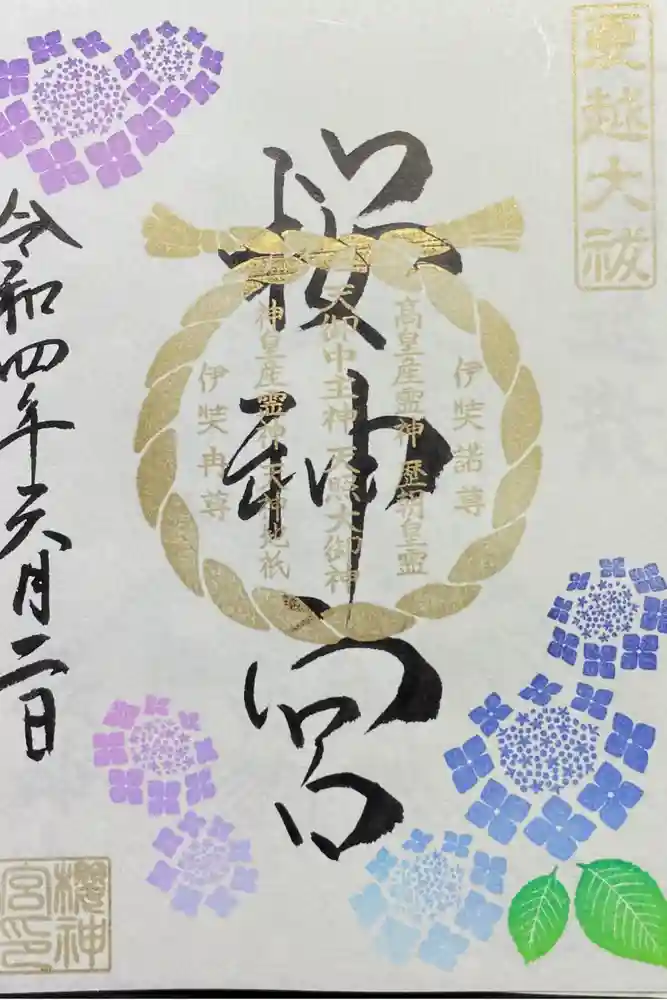 夏越大祓
桜神宮
伊奘諾尊
高皇産霊神 歴朝皇霊
天御中主神 天照大御神
神皇産霊神 天神地祇
伊奘冉尊
令和四年六月二日
櫻神宮印